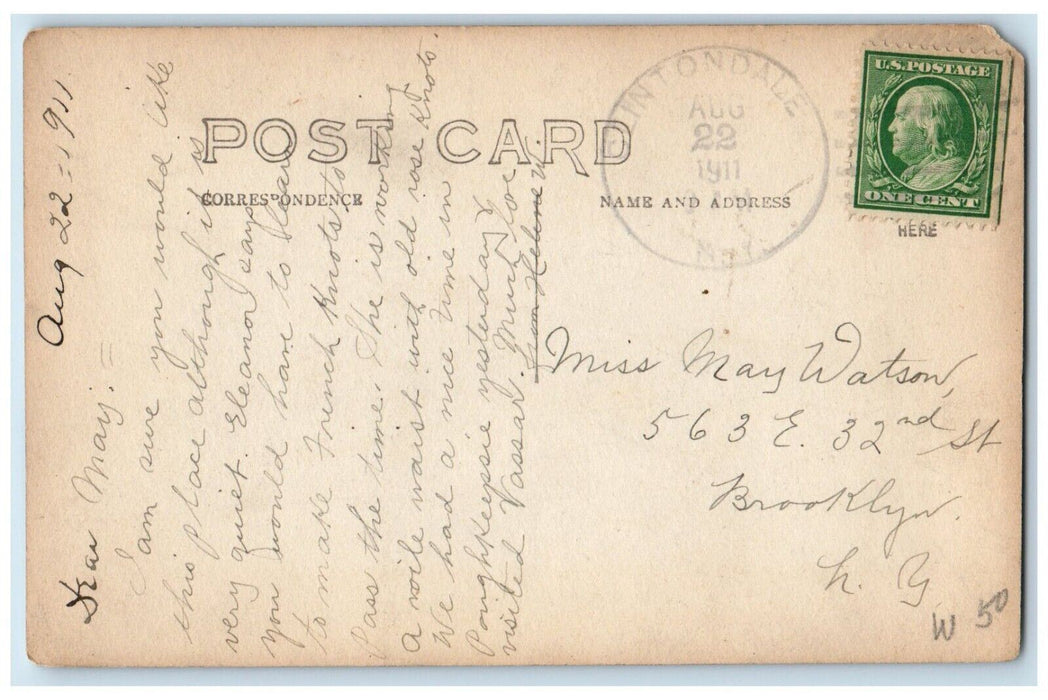 POST CARD
CORRESPONDENCE
NAME AND ADDRESS
CLINTONDALE
AUG
22
1911
N.Y.
U.S. POSTAGE
ONE CENT
HERE
Aug 22 - 1911
Dear May: =
I am sure you would like
this place although it is
very quiet. Eleanor says
you would have to learn
to make French Knots to
pass the time. She is working
a voile waist with old rose knots.
We had a nice time in
Poughkeepsie yesterday &
visited Vassar. Much love
from Helene W.
Miss May Watson,
563 E. 32nd St
Brooklyn.
N. Y.
W 50